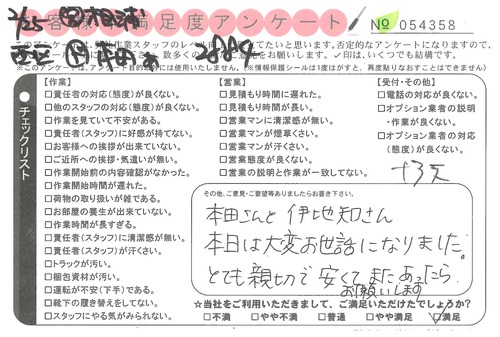 お客様満足度アンケート
No 054358
2/25
※このアンケートは、アンケート目的以外には使用いたしません。(※情報保護シールは1度はがすと、再度貼りなおすことはできません)
チェックリスト
【作業】
□責任者の対応(態度)が良くない。
□他のスタッフの対応(態度)が良くない。
□作業を見ていて不安がある。
□責任者(スタッフ)に好感が持てない。
□お客様への挨拶が出来ていない。
□ご近所への挨拶・気遣いが無い。
□作業開始前の内容確認がなかった。
□作業開始時間が遅れた。
□荷物の取り扱いが雑である。
□お部屋の養生が出来ていない。
□作業時間が長すぎる。
□責任者(スタッフ)に清潔感が無い。
□責任者(スタッフ)が汗くさい。
□トラックが汚い。
□梱包資材が汚い。
□運転が不安(下手)である。
□靴下の履き替えをしてない。
□スタッフにやる気がみられない。
【営業】
□見積もり時間に遅れた。
□見積もり時間が長い。
□営業マンに清潔感が無い。
□営業マンが煙草くさい。
□営業マンが汗くさい。
□営業態度が良くない。
□営業の説明と作業が一致してない。
【受付・その他】
□電話の対応が良くない。
□オプション業者の説明
・作業が良くない。
□オプション業者の対応
(態度)が良くない。
その他、ご意見・ご要望等ありましたらお書き下さい。
本田さんと伊地知さん
本日は大変お世話になりました。
とても親切で安くてまたあったら
お願いします
☆当社をご利用いただきまして、ご満足いただけたでしょうか?
□不満 □やや不満 □普通 □やや満足 ☑満足